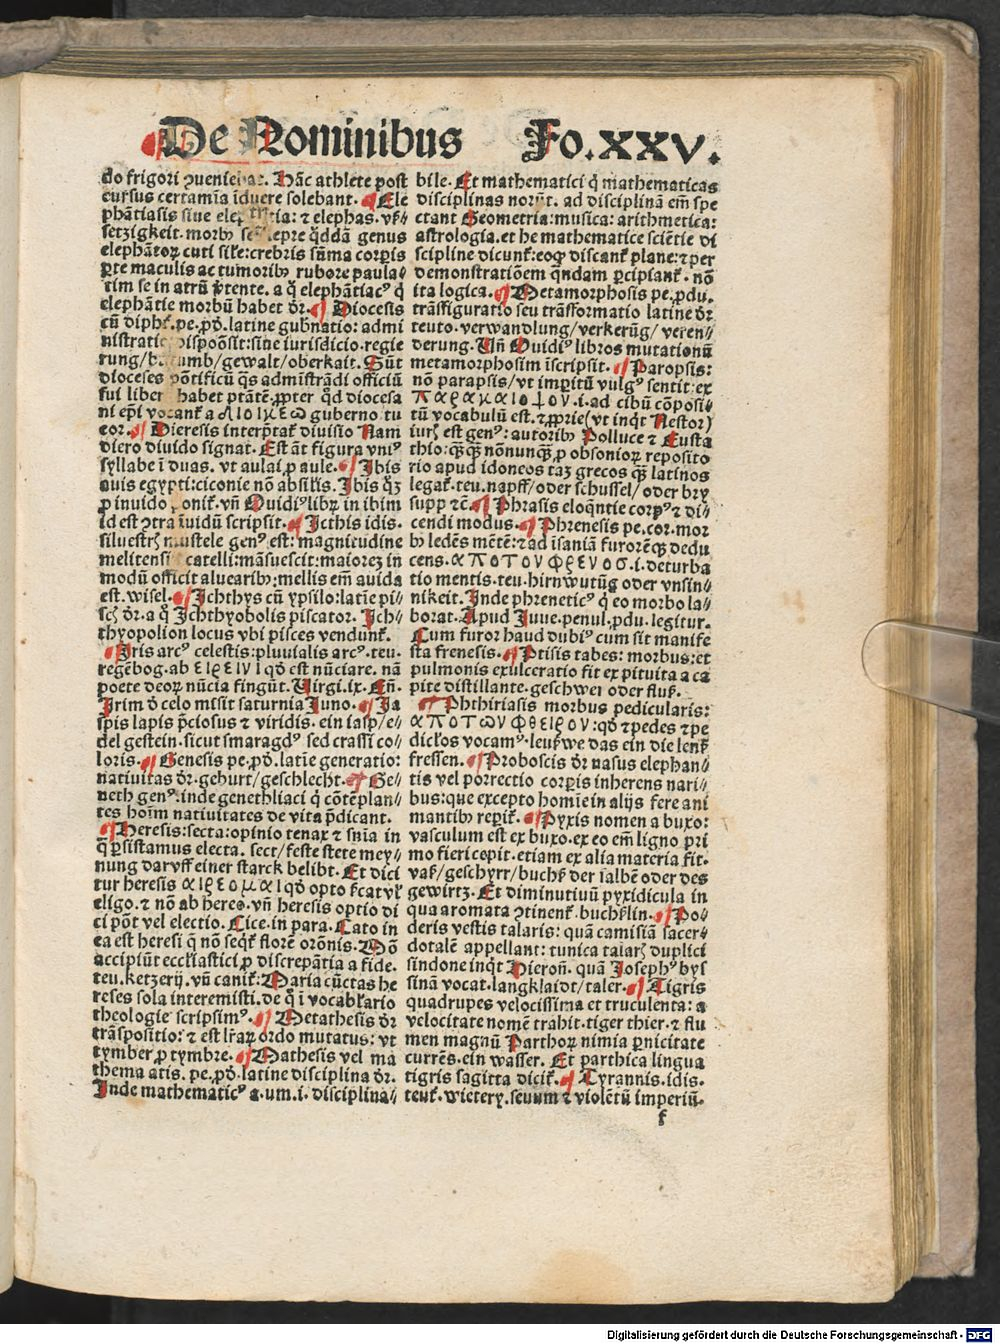 De Nominibus Fo.XXV.
do frigori ꝯueniebat. Hāc athlete post
cursus certamīa īduere solebant. ¶ Ele
phātiasis siue elephātia: ⁊ elephas. vß
setzigkeit. morbꝰ lepre q̇ddā genus
elephātoꝝ cuti sil'e: crebris sūma corꝑis
ꝑte maculis ac tumoribꝰ rubore paula
tim se in atrū ꝓtente. a q̇ elephātiacꝰ q̇
elephātie morbū habet dr̄. ¶ Diocesis
cū diphꝭ. pe. ꝓd. latine gub'natio: admi
nistratio dispoōsit: siue iurisdicio. regie
rung/ gewalt/oberkait. Sūt
dioceses pōtificū q̄s admīstrādi officiū
sui liber habet ptātē. ꝓpter q̇d diocesa
ni ep̄i vocant' a ΔΙΟΙΚΕΩ guberno tu
eor. ¶ Dieresis interp̄tat' diuisio Nam
diero diuido signat. Est āt figura vniꝰ
syllabe ī duas. vt aulai ꝓ aule. ¶ Ibis
auis egypti: ciconie nō absil'is. Ibis q̇ꝫ
ꝓ inuido ponit'. vn̄ Ouidiꝰ libꝝ in ibim
id est ꝯtra īuidū scripsit. ¶ Icthis idis.
siluestrꝭ mustele genꝰ est: magnitudine
melitensis catelli: māsuescit: maioreꝫ in
modū officit aluearibꝰ: mellis em̄ auida
est. wisel. ¶ Ichthys cū ypsilo: latīe pi⸗
scꝭ dr̄. a q̇ Ichthyobolis piscator. Ich⸗
thyopolion locus vbi pisces vendunt'.
¶ Iris arcꝰ celestis: pluuialis arcꝰ. teu.
regēbog. ab ΕΙΡΕΙΝΙ qd̓ est nūciare. nā
poete deoꝝ nūcia fingūt. Virgi. ix. En̄.
Irim d̓ celo misit saturnia Iuno. ¶ Ia
spis lapis p̄ciosus ⁊ viridis. ein iasp/e⸗
del gestein. sicut smaragdꝰ sed crassi co⸗
loris. ¶ Genesis pe. ꝓd. latīe generatio:
natiuitas dr̄. geburt/geschlecht. ¶ Ge⸗
neth genꝰ. inde genethliaci q̇ cōtēplan⸗
tes hoīm natiuitates de vita p̄dicant.
¶ Heresis: secta: opinio tenax ⁊ sn̄ia in
q̄ ꝑsistamus electa. sect/feste stete mey⸗
nung daruff einer starck belibt. Et dici
tur heresis ΑΙΡΕΟΜΑΙ qd̓ opto sc'at vl'
eligo. ⁊ nō ab heres. vn̄ heresis optio di
ci pōt vel electio. Cice. in para. Cato in
ea est heresi q̄ nō seqt' florē orōnis. Mō
accipiūt eccl'iastici ꝓ discrepātia a fide.
teu. ketzerij. vn̄ canit': Maria cūctas he
reses sola interemisti. de q̇ ī vocabl'ario
theologie scripsimꝰ. ¶ Metathesis dr̄
trāspositio: ⁊ est lr̄aꝝ ordo mutatus: vt
tymber ꝓ tymbre. ¶ Mathesis vel ma
thema atis. pe. ꝓd. latine disciplina dr̄.
Inde mathematicꝰ a. um. i. disciplina⸗
bile. Et mathematici q̇ mathematicas
disciplinas norūt. ad disciplinā em̄ spe
ctant Geometria: musica: arithmetica:
astrologia. et he mathematice sciētie di
scipline dicunt': eoꝙ discant' plane: ⁊ per
demonstratiōem q̄ndam ꝑcipiant'. nō
ita logica. ¶ Metamorphosis pe. ꝓdu.
trāsfiguratio seu trāsformatio latine dr̄
teuto. verwandlung/verkerūg/ veren⸗
derung. Vn̄ Ouidiꝰ libros mutationū
metamorphosim īscripsit. ¶ Paropsis:
nō parapsis/vt imꝑitū vulgꝰ sentit: ex
ΠΑΡΑΚΑΙΟΨΟΝ. i. ad cibū cōposi⸗
tū vocabulū est. ⁊ ꝓprie (vt inqt Nestor)
iurꝭ est genꝰ: autoribꝰ Polluce ⁊ Eusta
thio: q̄ꝙ nōnunꝙ ꝓ obsonioꝝ reposito
rio apud idoneos taꝫ grecos ꝙ latinos
legat'. teu. napff/oder schussel/oder bry
supp ⁊c̄. ¶ Phrasis eloq̄ntie corpꝰ ⁊ di⸗
cendi modus. ¶ Phrenesis pe. cor. mor
bꝰ ledēs mētē: ⁊ ad īsaniā furorēqꝫ dedu
cens. ΑΠΟΤΟΥΦΡΕΝΟΣ. i. deturba
tio mentis. teu. hirnwutūg oder vnsin⸗
nikeit. Inde phreneticꝰ q̇ eo morbo la⸗
borat. Apud Iuue. penul. ꝓdu. legitur.
Cum furor haud dubiꝰ cum sit manife
sta frenesis. ¶ Ptisis tabes: morbus: et
pulmonis exulceratio fit ex pituita a ca
pite distillante. geschwer oder fluß.
¶ Phthiriasis morbus pedicularis:
ΑΠΟΤΩΝΦΘΕΙΡΟΝ: qd̓ ⁊ pedes ⁊ pe
dicl'os vocamꝰ. leußwe das ein die leuß
fressen. ¶ Proboscis dr̄ nasus elephan⸗
tis vel porrectio corꝑis inherens nari⸗
bus: que excepto homīe in alijs fere ani
mantibꝰ reꝑit'. ¶ Pyxis nomen a buxo:
vasculum est ex buxo. ex eo em̄ ligno pri
mo fieri cepit. etiam ex alia materia fit.
vaß/geschyrr/buchß der salbē oder des
gewirtz. Et diminutiuū pyxidicula in
qua aromata ꝯtinent'. buchßlin. ¶ Po⸗
deris vestis talaris: quā camisiā sacer⸗
dotalē appellant: tunica talarꝭ duplici
sindone inq̇t Hieron̄. quā Iosephꝰ bys
sinā vocat. langklaidt/taler. ¶ Tigris
quadrupes velocissima et truculenta: a
velocitate nomē trahit. tiger thier. ⁊ flu
men magnū Parthoꝝ nimia ꝑnicitate
currēs. ein wasser. Et parthica lingua
tigris sagitta dicit'. ¶ Tyrannis. idis.
teut'. wietery. seuum ⁊ violētū imperiū.
f
Digitalisierung gefördert durch die Deutsche Forschungsgemeinschaft - DFG